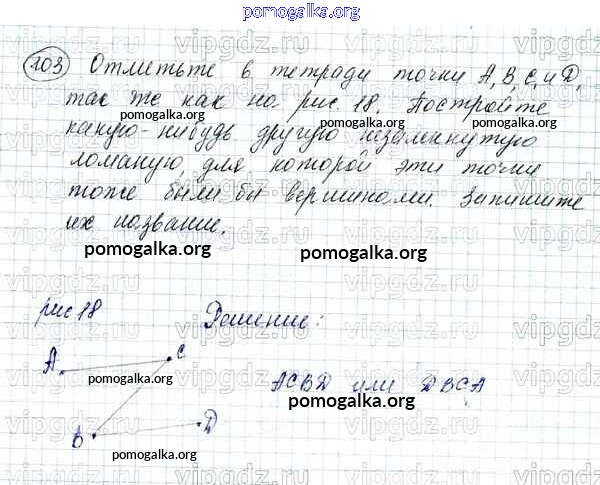 pomogalka.org
103 Отметьте в тетради точки A, B, C, и D,
так же как на рис. 18. Постройте
pomogalka.org
какую-нибудь другую незамкнутую
pomogalka.org
ломаную, для которой эти точки
тоже были бы вершинами. Запишите
их название.
pomogalka.org pomogalka.org
рис 18 Решение:
A C
pomogalka.org
ACBD или DBCA
pomogalka.org
B D
pomogalka.org
vipgdz.ru